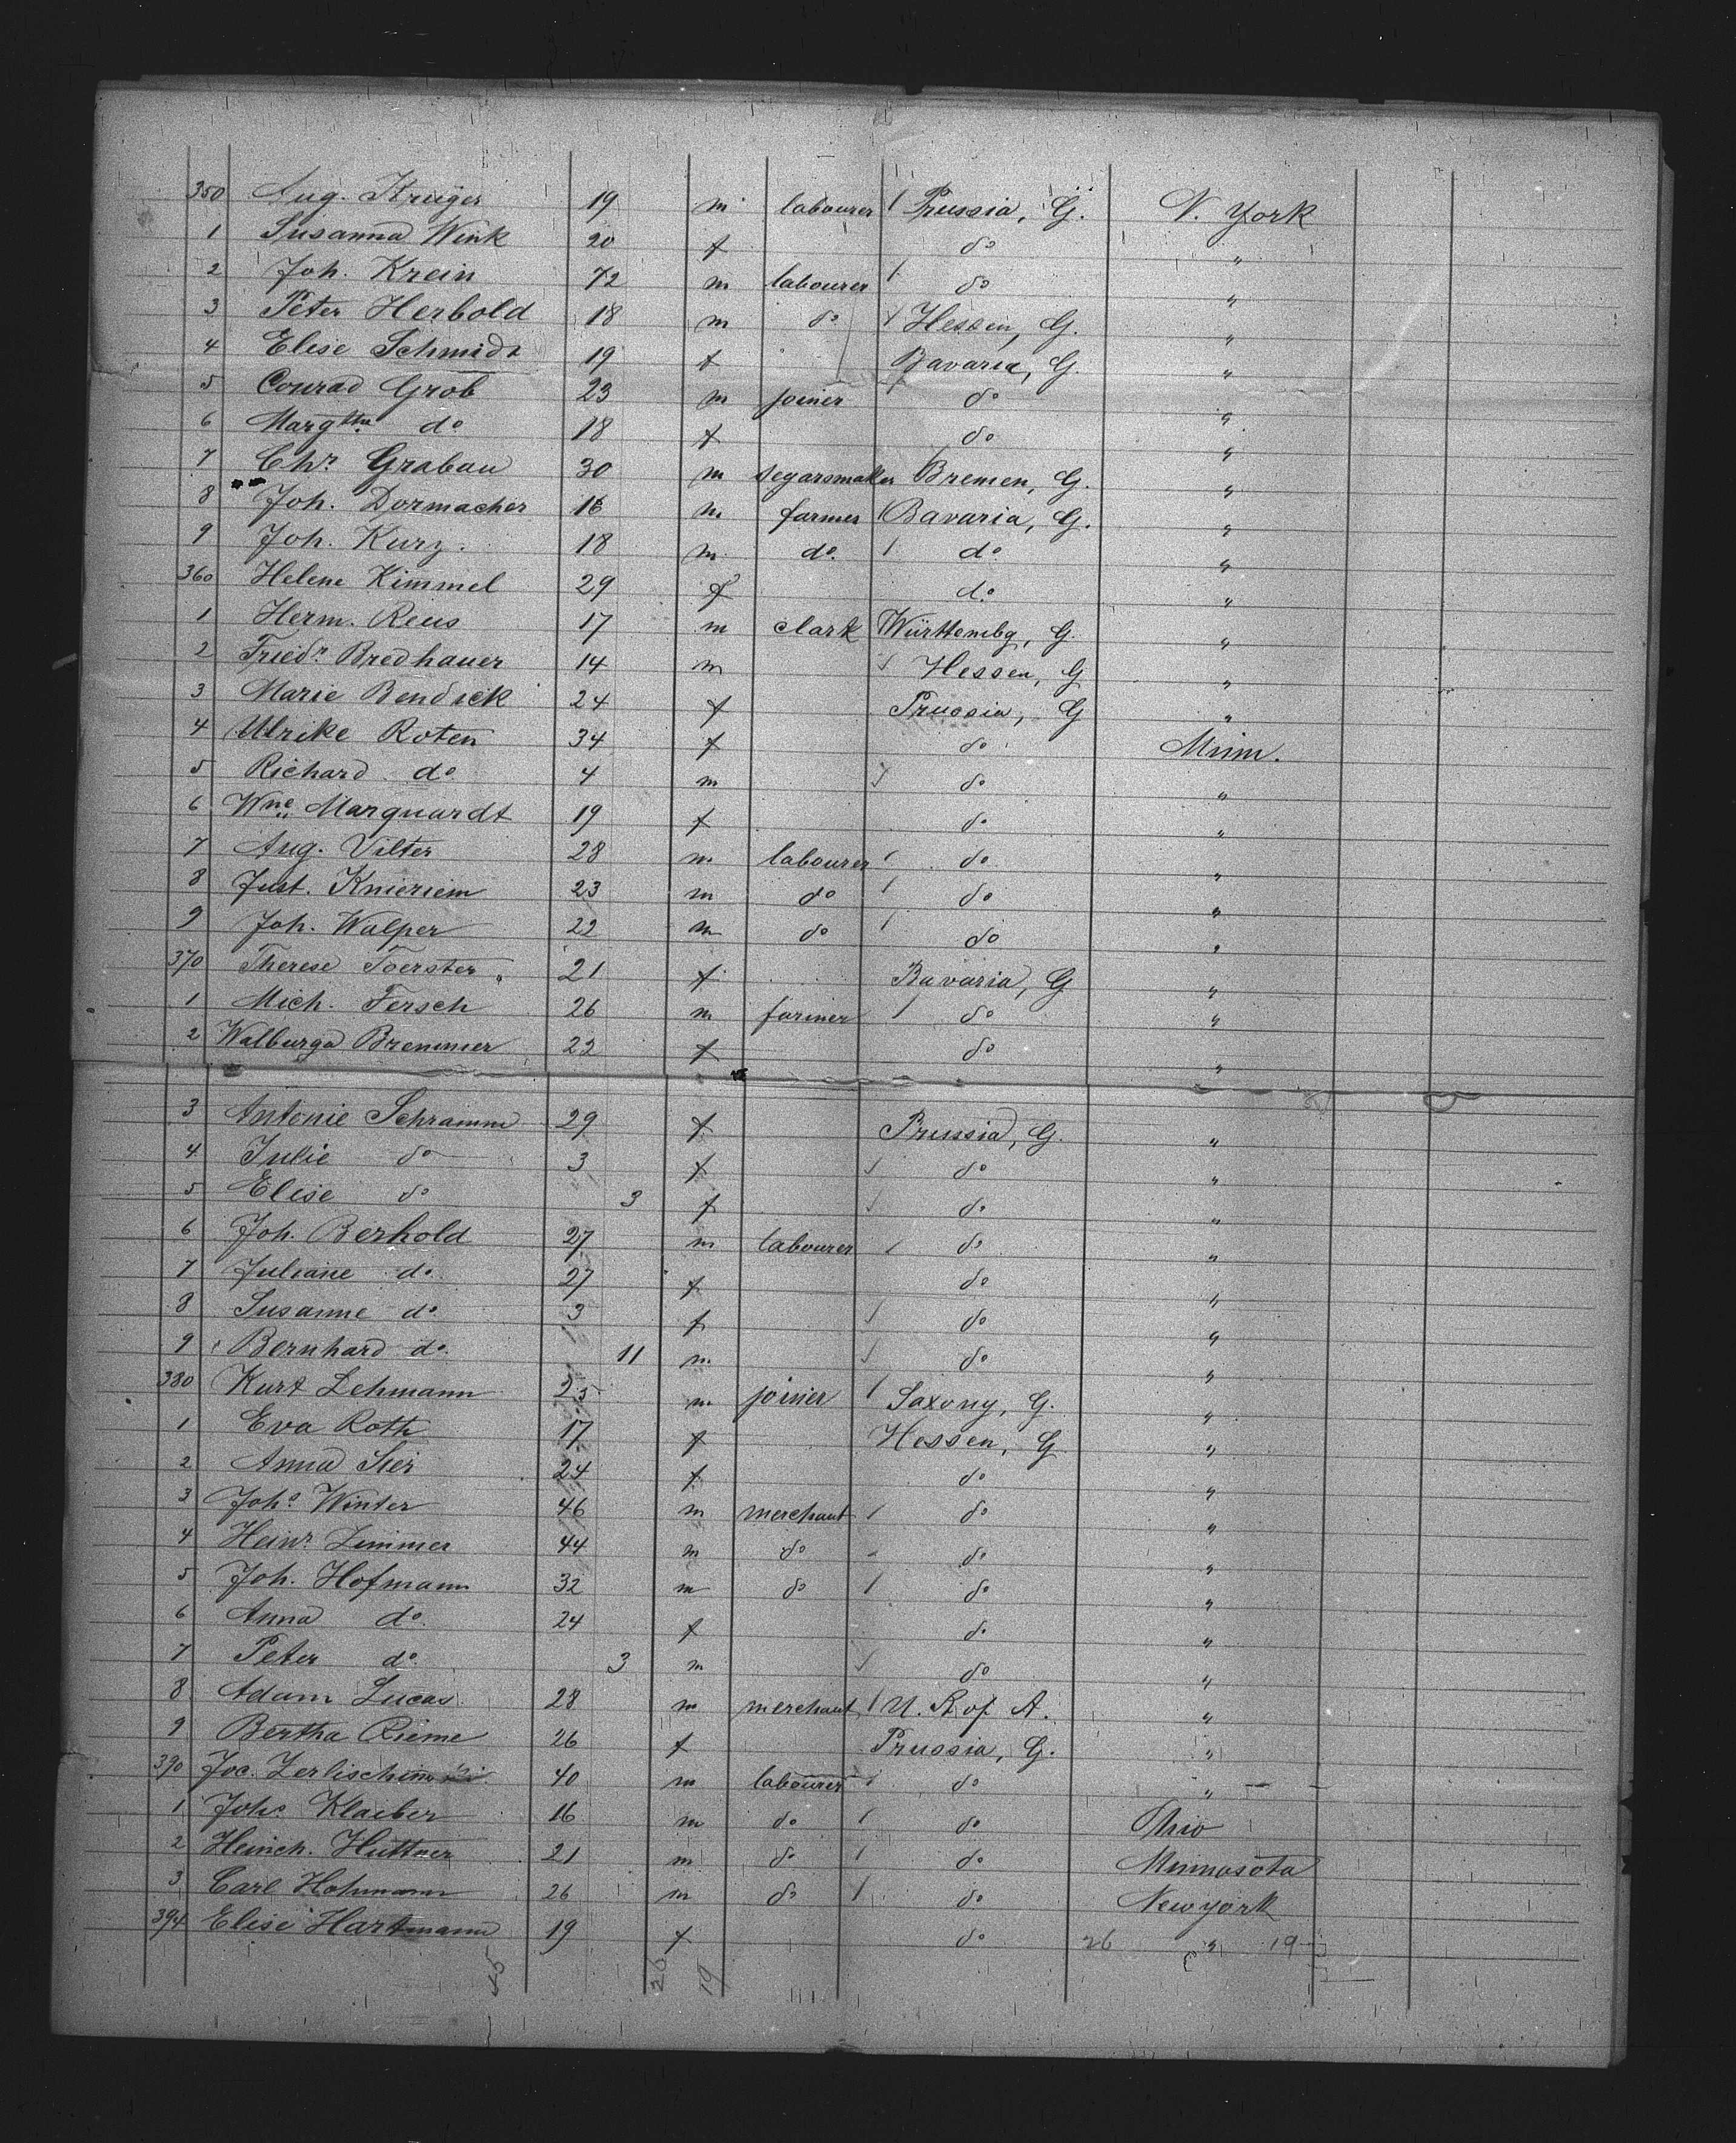 350 Aug. Krüger 19 m labourer / Prussia, G. N. York
1 Susanna Wink 20 f do "
2 Joh. Krein 42 m labourer / do "
3 Peter Herbold 18 m do / Hessen, G. "
4 Elise Schmidt 19 f Bavaria, G. "
5 Conrad Grob 23 m joiner do "
6 Margthe do 18 f do "
7 Chr. Grabau 30 m segarsmaker Bremen, G. "
8 Joh. Dormacher 16 m farmer / Bavaria, G. "
9 Joh. Kurz. 18 m do. / do "
360 Helene Kimmel 29 f do "
1 Herm. Reus 17 m clark / Württembg, G. "
2 Friedr. Bredhauer 14 m / Hessen, G "
3 Marie Bendick 24 f Prussia, G "
4 Ulrike Roten 34 f do Minn.
5 Richard do 4 m / do "
6 Wne Marquardt 19 f do "
7 Aug. Vilter 28 m labourer / do "
8 Just. Knieriem 23 m do / do "
9 Joh. Walper 22 m do / do "
370 Therese Foerster 21 f Bavaria, G "
1 Mich. Fersch 26 m farmer / do "
2 Walburga Bremmer 22 f do "
3 Antonie Schramm 29 f Prussia, G. "
4 Julie do 3 f / do "
5 Elise do 3 f / do "
6 Joh. Berhold 27 m labourer / do "
7 Juliane do. 27 f do "
8 Susanne do. 3 f / do "
9 Bernhard do. 11 m / do "
380 Kurt Lehmann 25 m joiner / Saxony, G. "
1 Eva Roth 17 f Hessen, G "
2 Anna Sier 24 f do "
3 Johs Winter 46 m merchant / do "
4 Heinr. Limmer 44 m do do "
5 Joh. Hofmann 32 m do / do "
6 Anna do. 24 f do "
7 Peter do. 3 m / do "
8 Adam Lucas 28 m merchant / U. St. of A. "
9 Bertha Rieme 26 f Prussia, G. "
390 Joc. 40 m labourer / do "
1 Johs Klaiber 16 m do / do Ohio
2 Heinch. Huttner 21 m do / do Minnasota
3 Carl Hohmann 26 m do / do Newyork
394 Elise Hartmann 19 f do 26 " 19
45 26 19